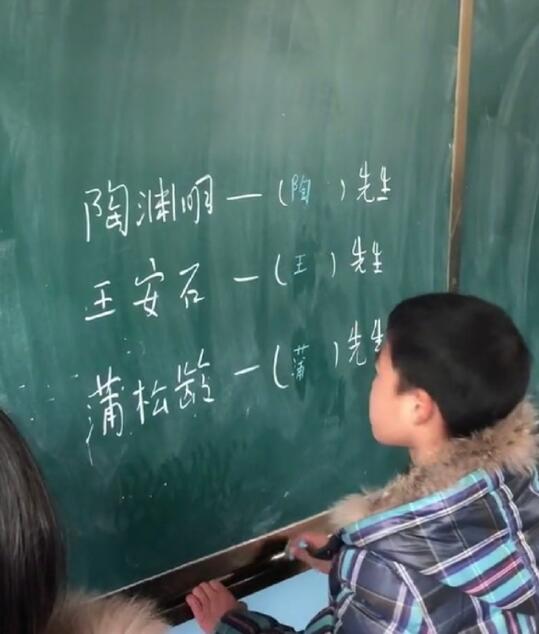 陶渊明—(陶 )先生
王安石—(王 )先生
蒲松龄—(蒲 )先生